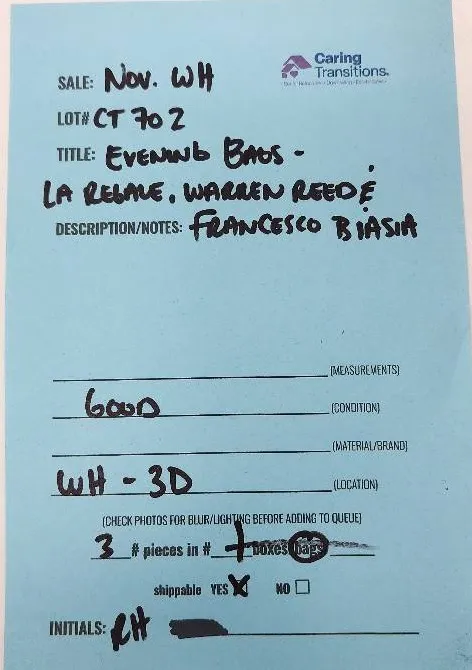 Caring
Transitions®
SALE: NOV. WH
LOT# CT 702
TITLE: EVENING BAGS -
LA REGALE, WARREN REED &
DESCRIPTION/NOTES: FRANCESCO BIASIA
(MEASUREMENTS)
GOOD (CONDITION)
(MATERIAL/BRAND)
WH - 3D (LOCATION)
(CHECK PHOTOS FOR BLUR/LIGHTING BEFORE ADDING TO QUEUE)
3 # pieces in # 1 boxes bags
shippable YES X NO
INITIALS: RH